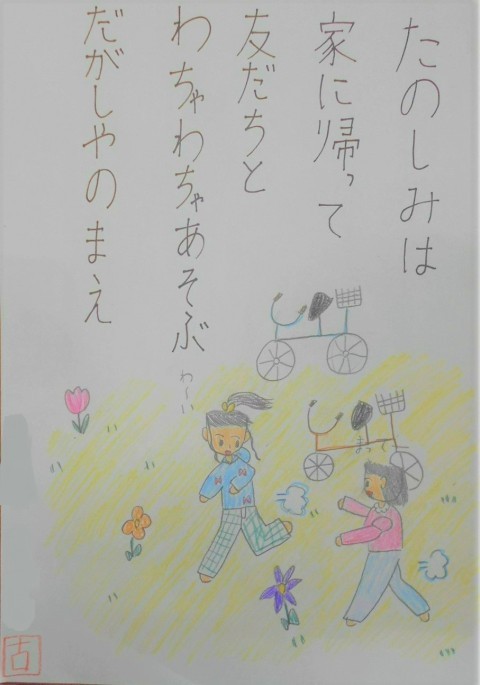 たのしみは
家に帰って
友だちと
わちゃわちゃあそぶ
だがしやのまえ
わーい
まってー
古